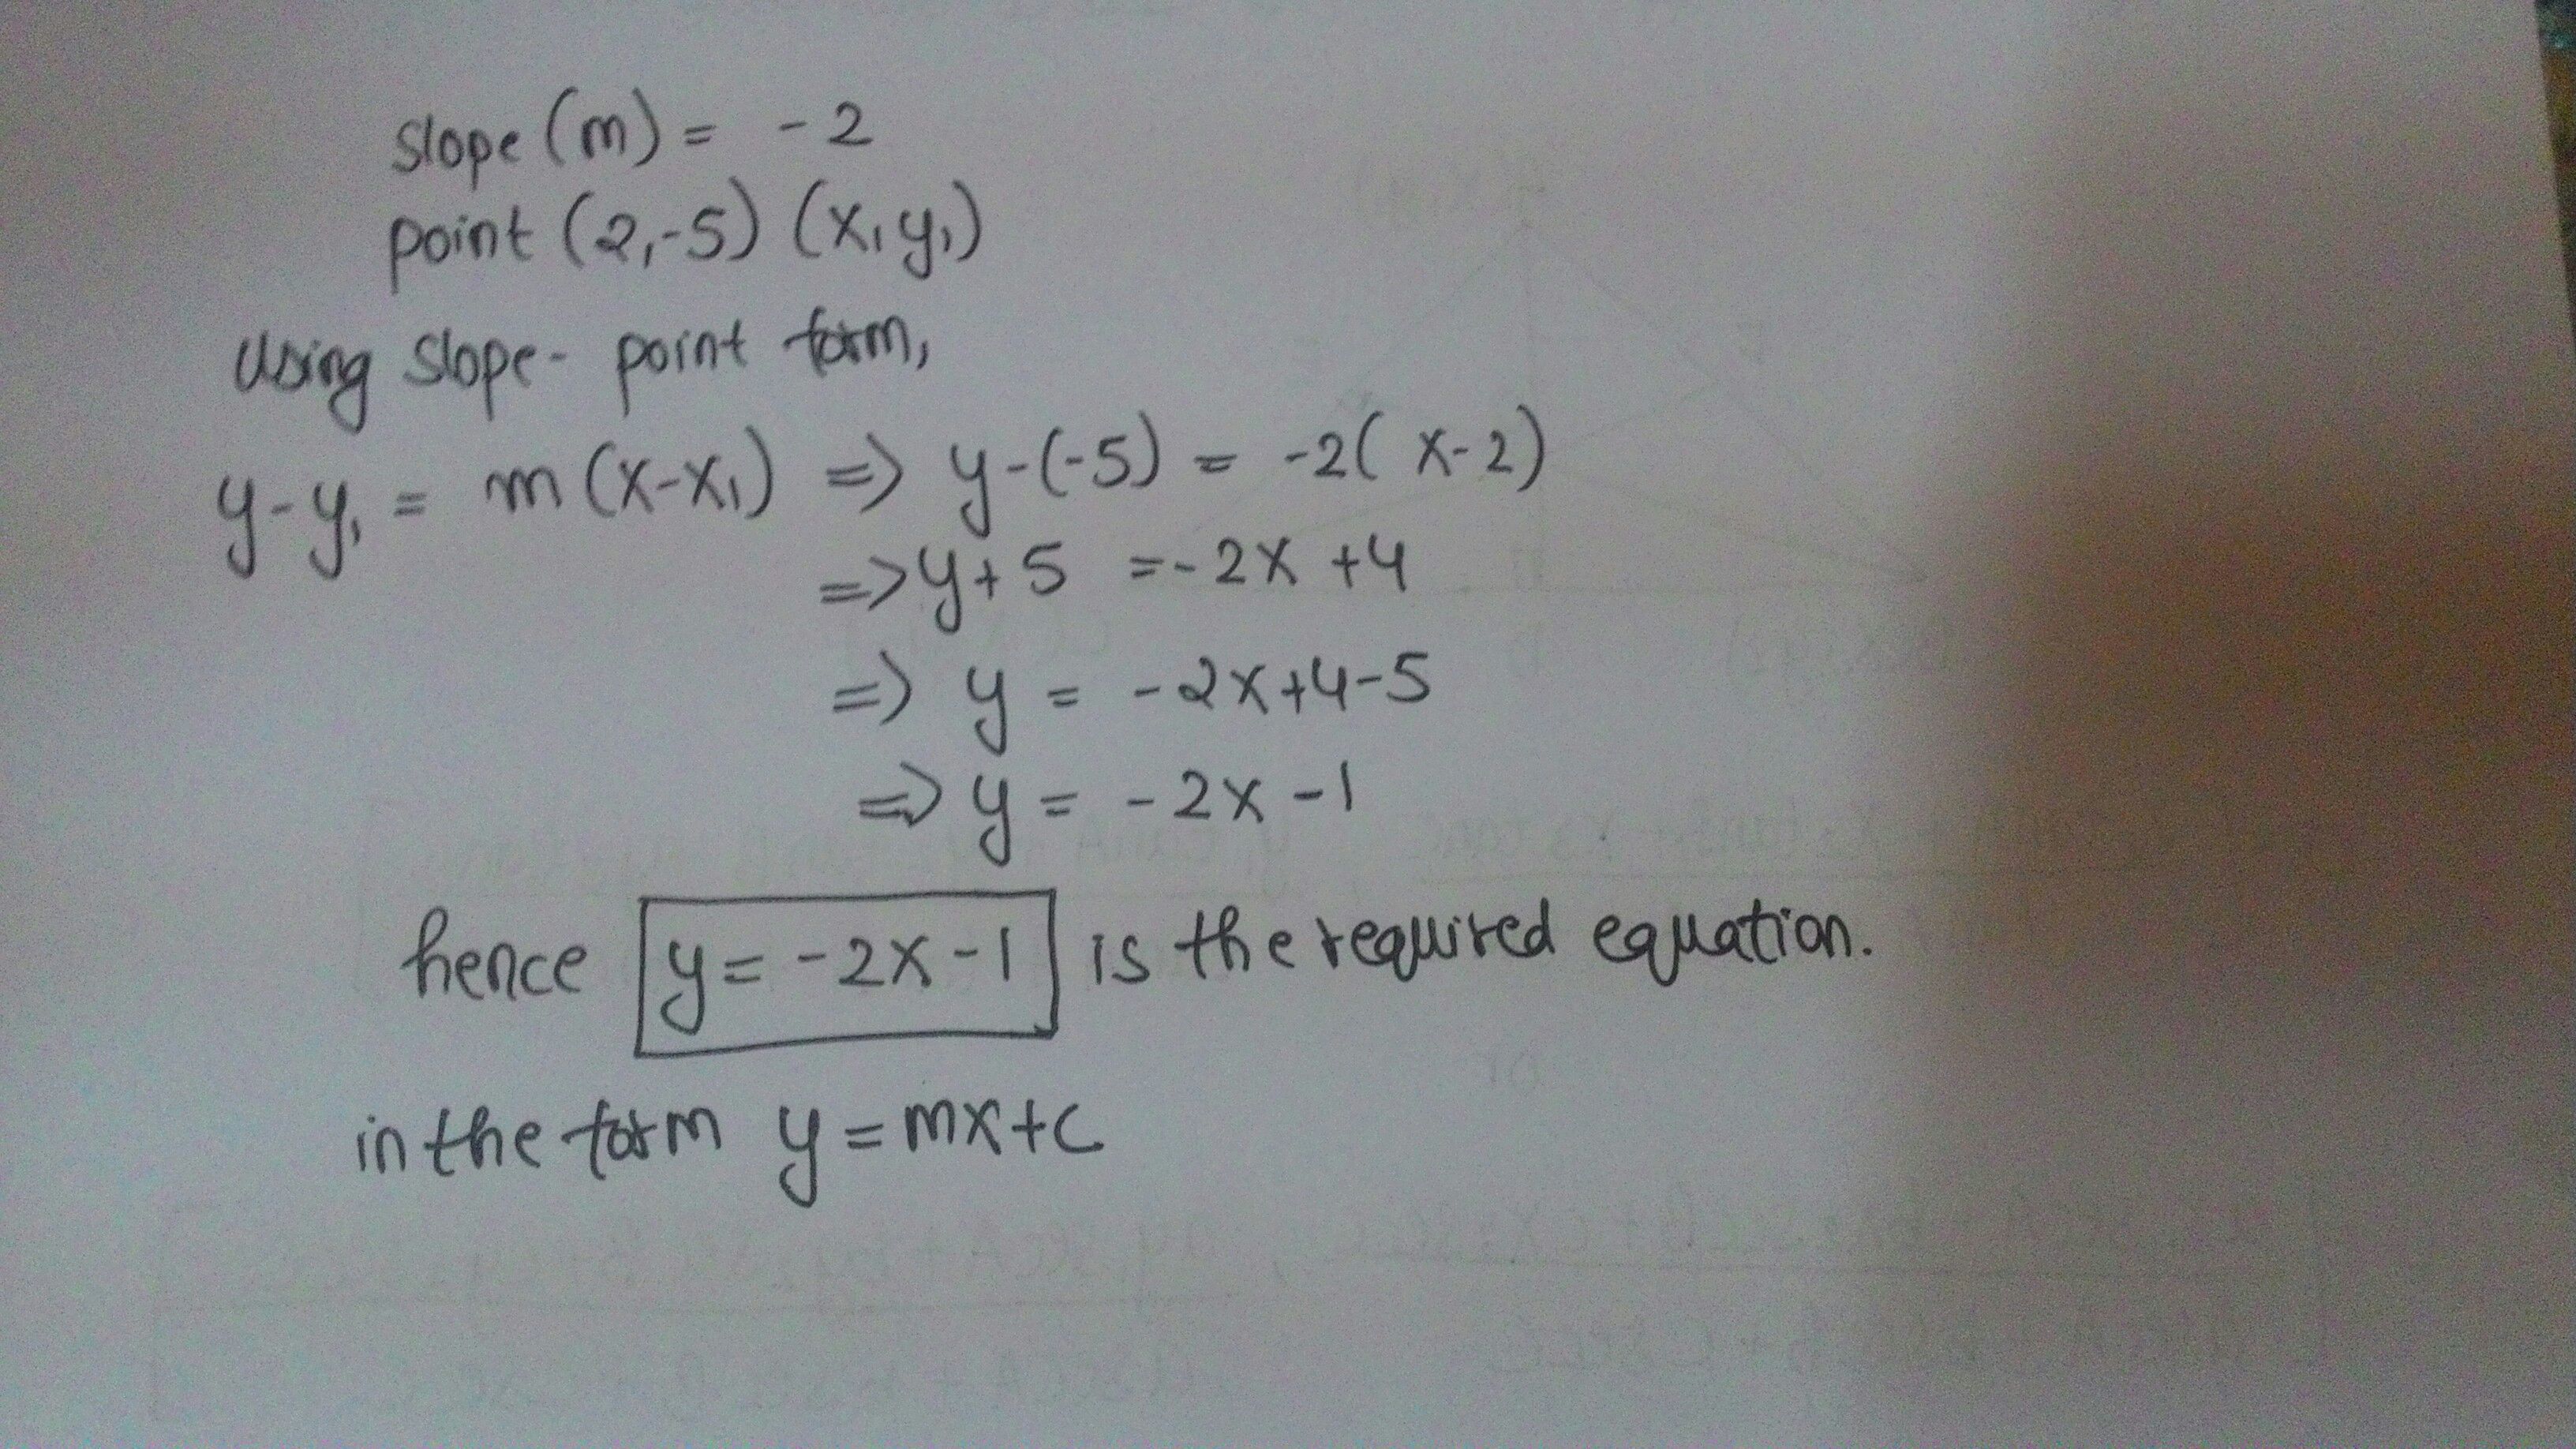 slope (m) = -2
point (2,-5) (x₁ y₁)
Using slope- point form,
y-y₁ = m(x-x₁) => y-(-5) = -2( x-2)
=> y+5 = -2x +4
=> y = -2x+4-5
=> y = -2x -1
hence y= -2x-1 is the required equation.
in the form y=mx+c